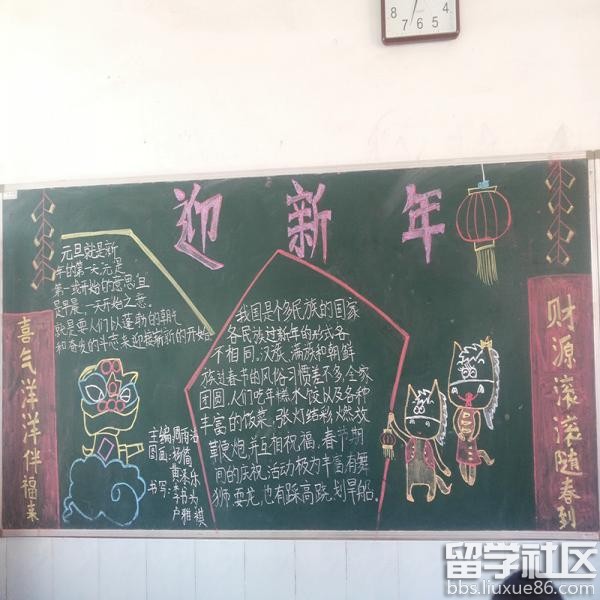 8
7
6
5
4
迎新年
元旦就是新
年的第一天,元是
第一或开始的意思,旦
是早晨,一天开始之意。
就是要人们以蓬勃的朝气
和奋发的斗志来迎接崭新的开始
我国是个多民族的国家
各民族过新年的形式各
不相同,汉族、满族和朝鲜
族过春节的风俗习惯差不多,全家
团圆,人们吃年糕、水饺以及各种
丰富的饭菜,张灯结彩,燃放
鞭炮,并互相祝福,春节期
间的庆祝活动极为丰富有舞
狮、耍龙,也有踩高跷,划旱船。
喜气洋洋伴福来
财源滚滚随春到
主编:周雨洁
图画:杨简
书写:
卢雅祺
留学社区
bbs.liuxue86.com